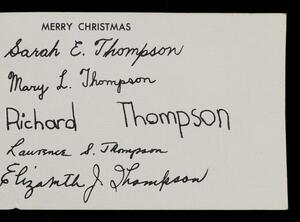 MERRY CHRISTMAS
Sarah E. Thompson
Mary L. Thompson
Richard Thompson
Lawrence S. Thompson
Elizabeth J Thompson